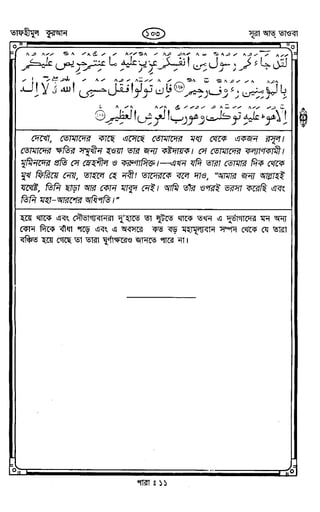 তাফহীমুল কুরআন
১০৩
সূরা আত্ তাওবা
لَقَدْ جَاءَكُمْ رَسُولٌ مِّنْ أَنفُسِكُمْ عَزِيزٌ عَلَيْهِ مَا عَنِتُّمْ حَرِيصٌ عَلَيْكُمْ
بِالْمُؤْمِنِينَ رَءُوفٌ رَّحِيمٌ ﴿١٢٨﴾ فَإِن تَوَلَّوْا فَقُلْ حَسْبِيَ اللَّهُ لَا إِلَٰهَ
إِلَّا هُوَ عَلَيْهِ تَوَكَّلْتُ وَهُوَ رَبُّ الْعَرْشِ الْعَظِيمِ ﴿١٢٩﴾
দেখো, তোমাদের কাছে এসেছে তোমাদের মধ্য থেকে একজন রসূল।
তোমাদের ক্ষতির সম্মুখীন হওয়া তার জন্য কষ্টদায়ক। সে তোমাদের কল্যাণকামী।
মুমিনদের প্রতি সে স্নেহশীল ও করুণাসিক্ত।—এখন যদি তারা তোমার দিক থেকে
মুখ ফিরিয়ে নেয়, তাহলে হে নবী! তাদেরকে বলে দাও, “আমার জন্য আল্লাহই
যথেষ্ট, তিনি ছাড়া আর কোন মাবুদ নেই। আমি তাঁর ওপরই ভরসা করেছি এবং
তিনি মহা-আরশের অধিপতি।”
হয়ে থাকে এবং সৌভাগ্যবানরা দু'হাতে তা লুটতে থাকে তখন এ দুর্ভাগাদের মন অন্য
কোন দিকে বাঁধা পড়ে এবং এ অবসরে কত বড় মহামূল্যবান সম্পদ থেকে যে তারা
বঞ্চিত হয়ে গেছে তা তারা ঘুণাক্ষরেও জানতে পারে না।
পারা : ১১